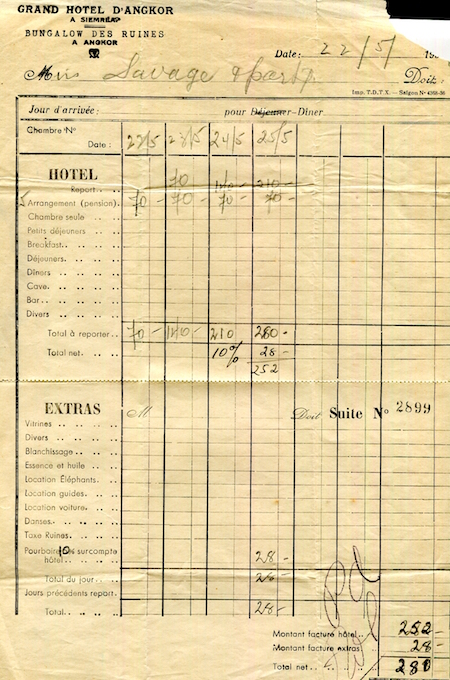 GRAND HOTEL D'ANGKOR
A SIEMRÉAP
BUNGALOW DES RUINES
A ANGKOR
Date: 22/5/ 193
Miss Savage & party. Doit:
Imp. T.D.T.X. – Saigon Nº 4368-36
Jour d'arrivée: pour Déjeuner-Dîner
Chambre Nº
Date: 22/5 23/5 24/5 25/5
HOTEL
Report 70 140 - 210 -
5 Arrangement (pension). 70 - 70 - 70 - 70 -
Chambre seule
Petits déjeuners
Breakfast
Déjeuners
Dîners
Cave
Bar
Divers
Total à reporter 70 - 140 - 210 280 -
Total net. 10% 28 -
252
EXTRAS M Doit Suite Nº 2899
Vitrines
Divers
Blanchissage
Essence et huile
Location Éléphants
Location guides
Location voiture
Danses
Taxe Ruines
Pourboire 10% surcompte
hôtel 28 -
Total du jour 28 -
Jours précédents report.
Total 28 -
Pd
Montant facturé hôtel 252 -
Montant facturé extras 28 -
Total net 280